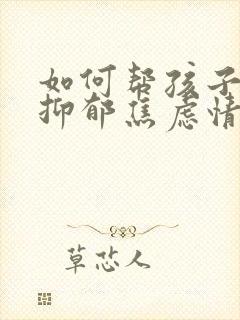 如何帮孩子
抑郁焦虑情
草芯人